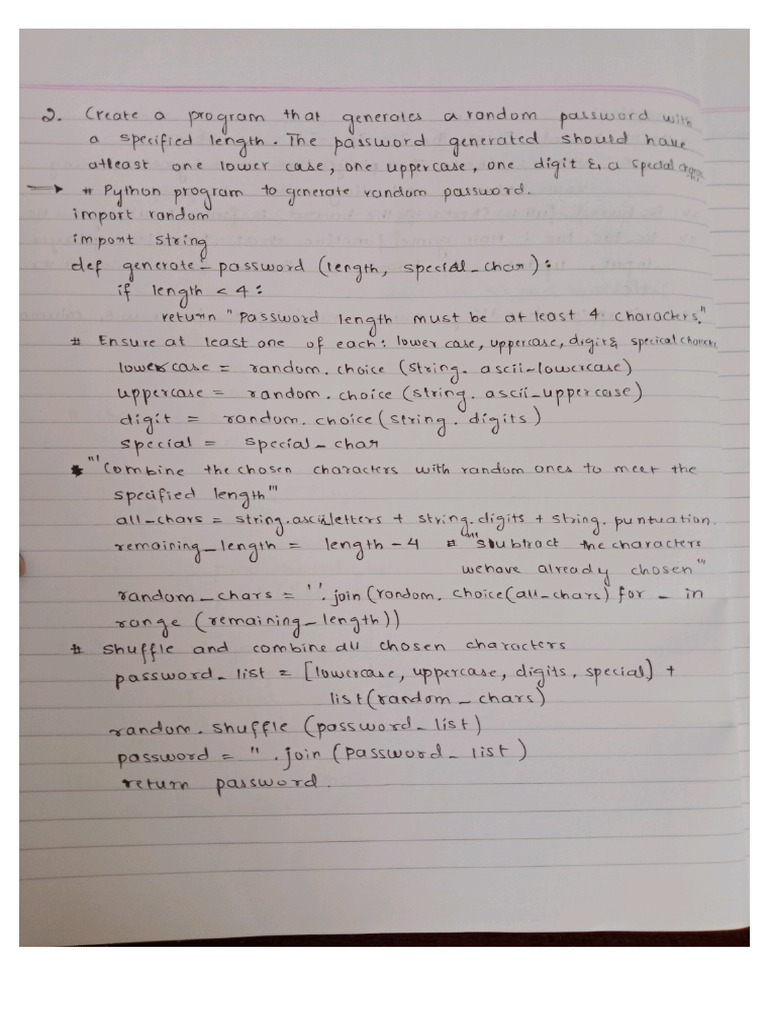 2. Create a program that generates a random password with
a specified length. The password generated should have
atleast one lower case, one uppercase, one digit & a special
→ # Python program to generate random password.
import random
import string
def generate_password (length, special_char):
if length < 4:
return "Password length must be at least 4 characters."
# Ensure at least one of each: lower case, uppercase, digit &
lowercase = random.choice (string. ascii-lowercase)
uppercase = random.choice (string. ascii_uppercase)
digit = random.choice (string. digits)
special = special_char
"' Combine the chosen characters with random ones to meet the
specified length"'
all_chars = string.ascii_letters + string.digits + string. puntuation.
remaining_length = length - 4 # "'Subtract the characters
we have already chosen"'
random_chars = ''.join (random. choice(all_chars) for _ in
range (remaining_length))
# Shuffle and combine all chosen characters
password_list = [lowercase, uppercase, digits, special] +
list(random_chars)
random.shuffle (password_list)
password = ''.join (password_list)
return password.